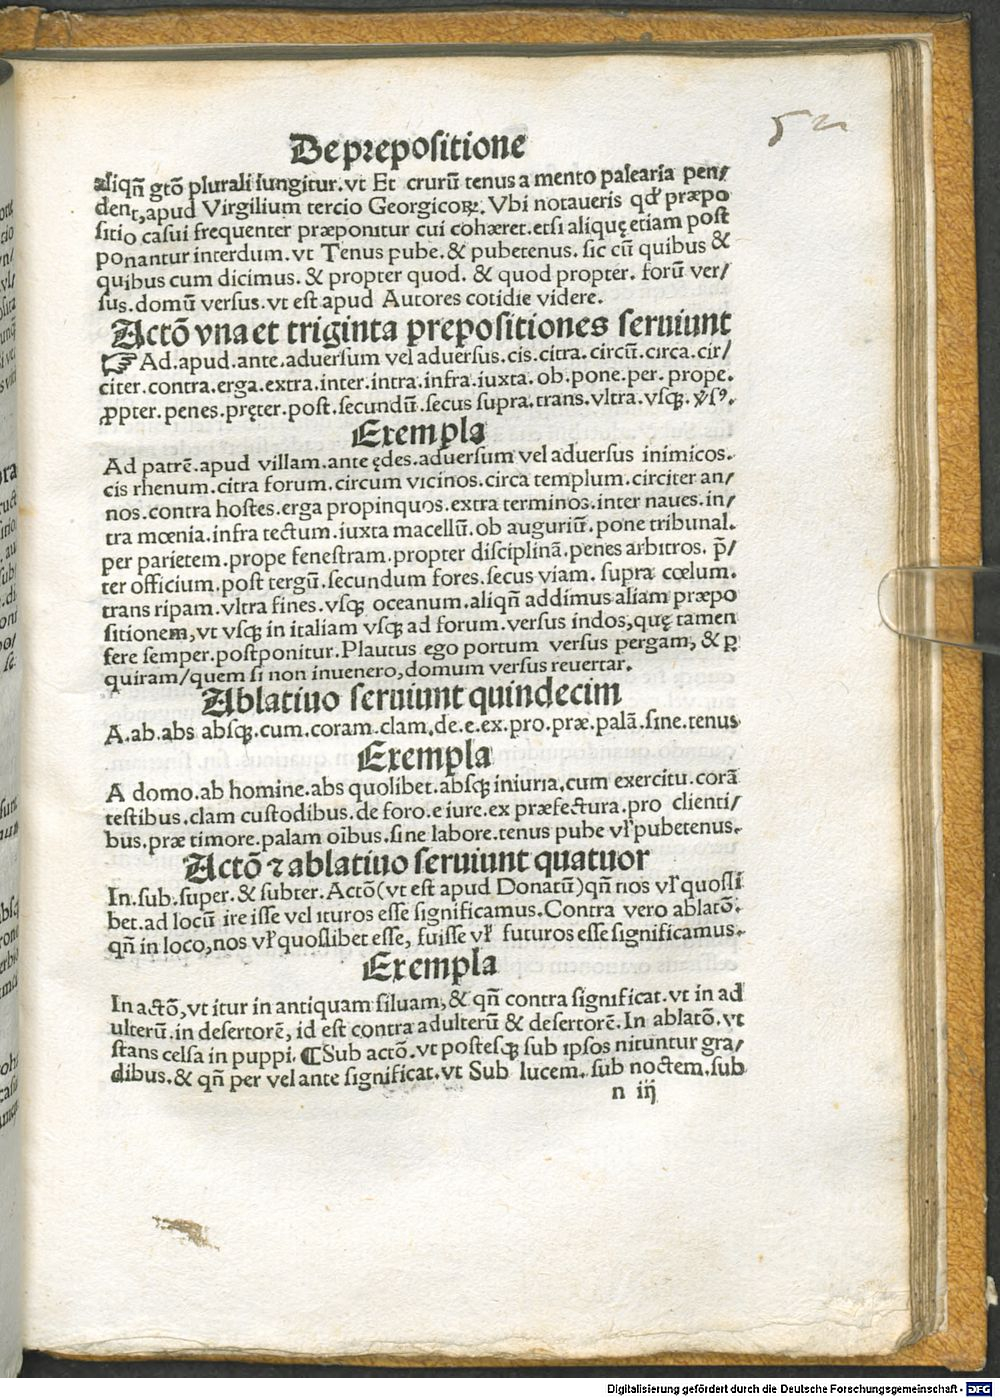 52
De prepositione
aliqñ gtõ plurali iungitur.vt Et crurũ tenus a mento palearia pen/
dent, apud Virgilium tercio Georgicoꝝ. Vbi notaueris qđ præpo
sitio casui frequenter præponitur cui cohæret.etsi aliquę etiam post
ponantur interdum.vt Tenus pube.& pubetenus. sic cũ quibus &
quibus cum dicimus. & propter quod. & quod propter. forũ ver/
sus.domũ versus.vt est apud Autores cotidie videre.
Actõ vna et triginta prepositiones seruiunt
☞ Ad.apud.ante.aduersum vel aduersus.cis.citra.circũ.circa.cir/
citer.contra.erga.extra.inter.intra.infra.iuxta.ob.pone.per.prope.
ꝓpter.penes.pręter.post.secundũ.secus supra.trans.vltra.vsqꝫ.ṽsꝰ.
Exempla
Ad patrẽ.apud villam.ante ędes.aduersum vel aduersus inimicos.
cis rhenum.citra forum.circum vicinos.circa templum.circiter an/
nos.contra hostes.erga propinquos.extra terminos.inter naues.in/
tra mœnia.infra tectum.iuxta macellũ.ob auguriũ.pone tribunal.
per parietem.prope fenestram.propter disciplinã.penes arbitros. p̃/
ter officium.post tergũ.secundum fores.secus viam. supra cœlum.
trans ripam.vltra fines.vsqꝫ oceanum.aliqñ addimus aliam præpo
sitionem,vt vsqꝫ in italiam vsqꝫ ad forum.versus indos,quę tamen
fere semper.postponitur.Plautus ego portum versus pergam, & ꝑ
quiram/quem si non inuenero,domum versus reuertar.
Ablatiuo seruiunt quindecim
A.ab.abs absqꝫ.cum.coram.clam.de.e.ex.pro.præ.palã.sine.tenus
Exempla
A domo.ab homine.abs quolibet.absqꝫ iniuria.cum exercitu.corã
testibus.clam custodibus.de foro.e iure.ex præfectura.pro clienti/
bus.præ timore.palam oĩbus.sine labore.tenus pube vł pubetenus.
Actõ ⁊ ablatiuo seruiunt quatuor
In.sub.super.& subter.Actõ(vt est apud Donatũ)qñ nos vł quosli
bet.ad locũ ire isse vel ituros esse significamus.Contra vero ablatõ.
qñ in loco,nos vł quoslibet esse, fuisse vł futuros esse significamus.
Exempla
In actõ,vt itur in antiquam siluam, & qñ contra significat.vt in ad
ulterũ.in desertorẽ, id est contra adulterũ & desertorẽ.In ablatõ.vt
stans celsa in puppi. ¶Sub actõ.vt postesqꝫ sub ipsos nituntur gra/
dibus.& qñ per vel ante significat.vt Sub lucem. sub noctem.sub
n iij
Digitalisierung gefördert durch die Deutsche Forschungsgemeinschaft - DFG